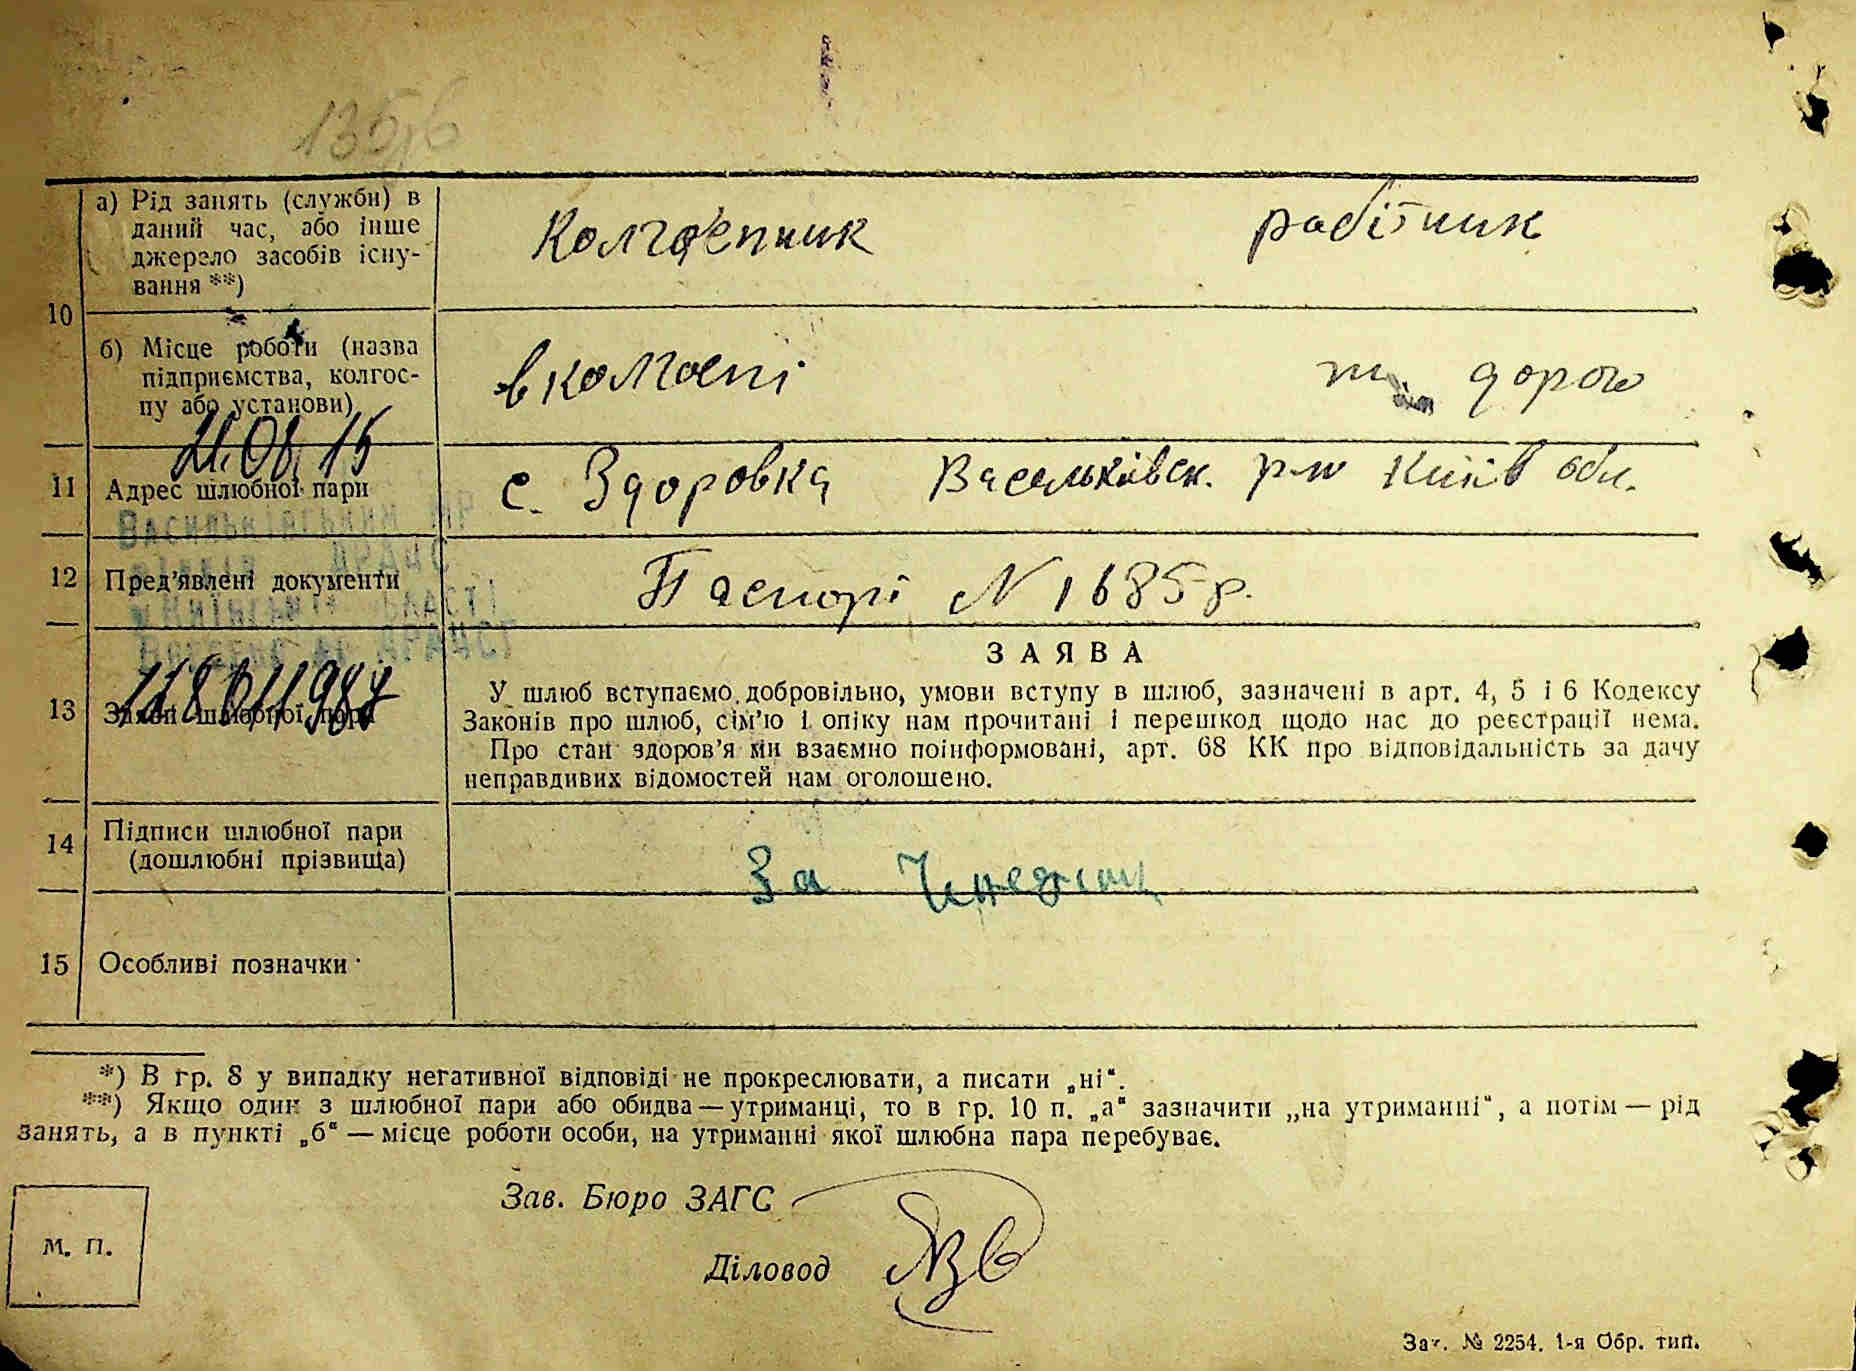 а) Рід занять (служби) в
даний час, або інше
джерело засобів існу-
вання **)
Колгоспник робітник
10
б) Місце роботи (назва
підприємства, колгос-
пу або установи)
в колгоспі дорог
21.08.15
11 Адрес шлюбної пари
с. Здоровка Васильківськ. р-н Київ обл.
Васильківський МР
ДРАЦС
12 Пред'явлені документи
Паспорт N 1685 р.
Київської області
ДРАЦС
13 Заяви шлюбної пари
ЗАЯВА
У шлюб вступаємо добровільно, умови вступу в шлюб, зазначені в арт. 4, 5 і 6 Кодексу
Законів про шлюб, сім'ю і опіку нам прочитані і перешкод щодо нас до реєстрації нема.
Про стан здоров'я ми взаємно поінформовані, арт. 68 КК про відповідальність за дачу
неправдивих відомостей нам оголошено.
14 Підписи шлюбної пари
(дошлюбні прізвища)
За
15 Особливі позначки
*) В гр. 8 у випадку негативної відповіді не прокреслювати, а писати „ні“.
**) Якщо один з шлюбної пари або обидва — утриманці, то в гр. 10 п. „а“ зазначити „на утриманні“, а потім — рід
занять, а в пункті „б“ — місце роботи особи, на утриманні якої шлюбна пара перебуває.
Зав. Бюро ЗАГС
М. П.
Діловод
Зак. № 2254. 1-я Обр. тип.